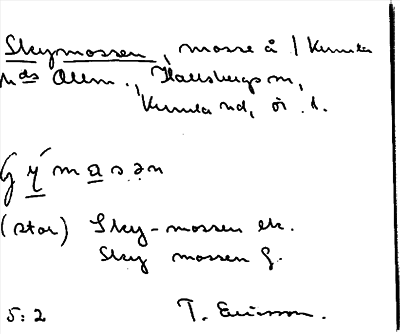 Skymossen, mosse å | Kumla
nds Allm., Hallsbergs sn,
Kumla hd, ör. l.
(stor) Sky-mossen ek.
Sky mossen g.
5:2 T. Ericsson.